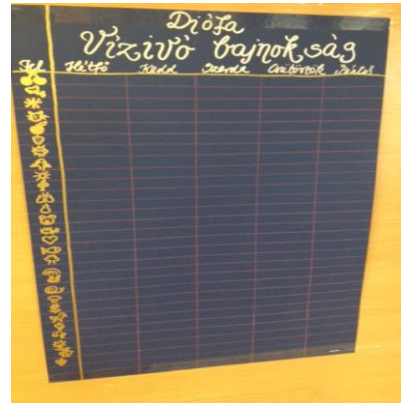 Diófa
Vízivó bajnokság
Jel Hétfő Kedd Szerda Csütörtök Péntek